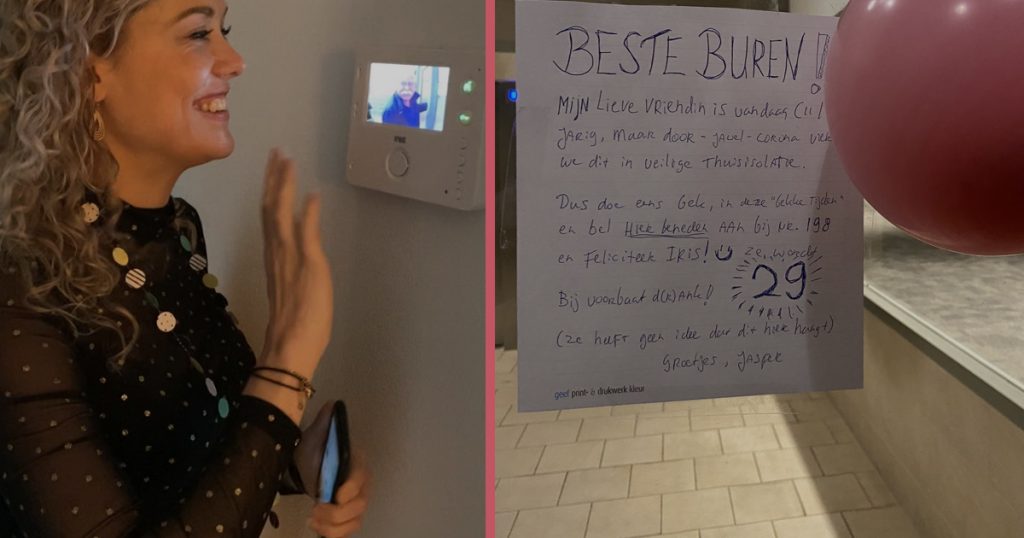 BESTE BUREN!
Mijn Lieve vriendin is vandaag (11/
jarig, maar door - jawel - corona
we dit in veilige thuisisolatie.
Dus doe eens gek, in deze "gekke tijden"
en bel Hier beneden AAN bij Nr. 198
en Feliciteer IRIS! ze wordt
29
Bij voorbaat d(r)ank!
(ze heeft geen idee dat dit hier hangt)
Groetjes, Jasper
geef print- & drukwerk kleur